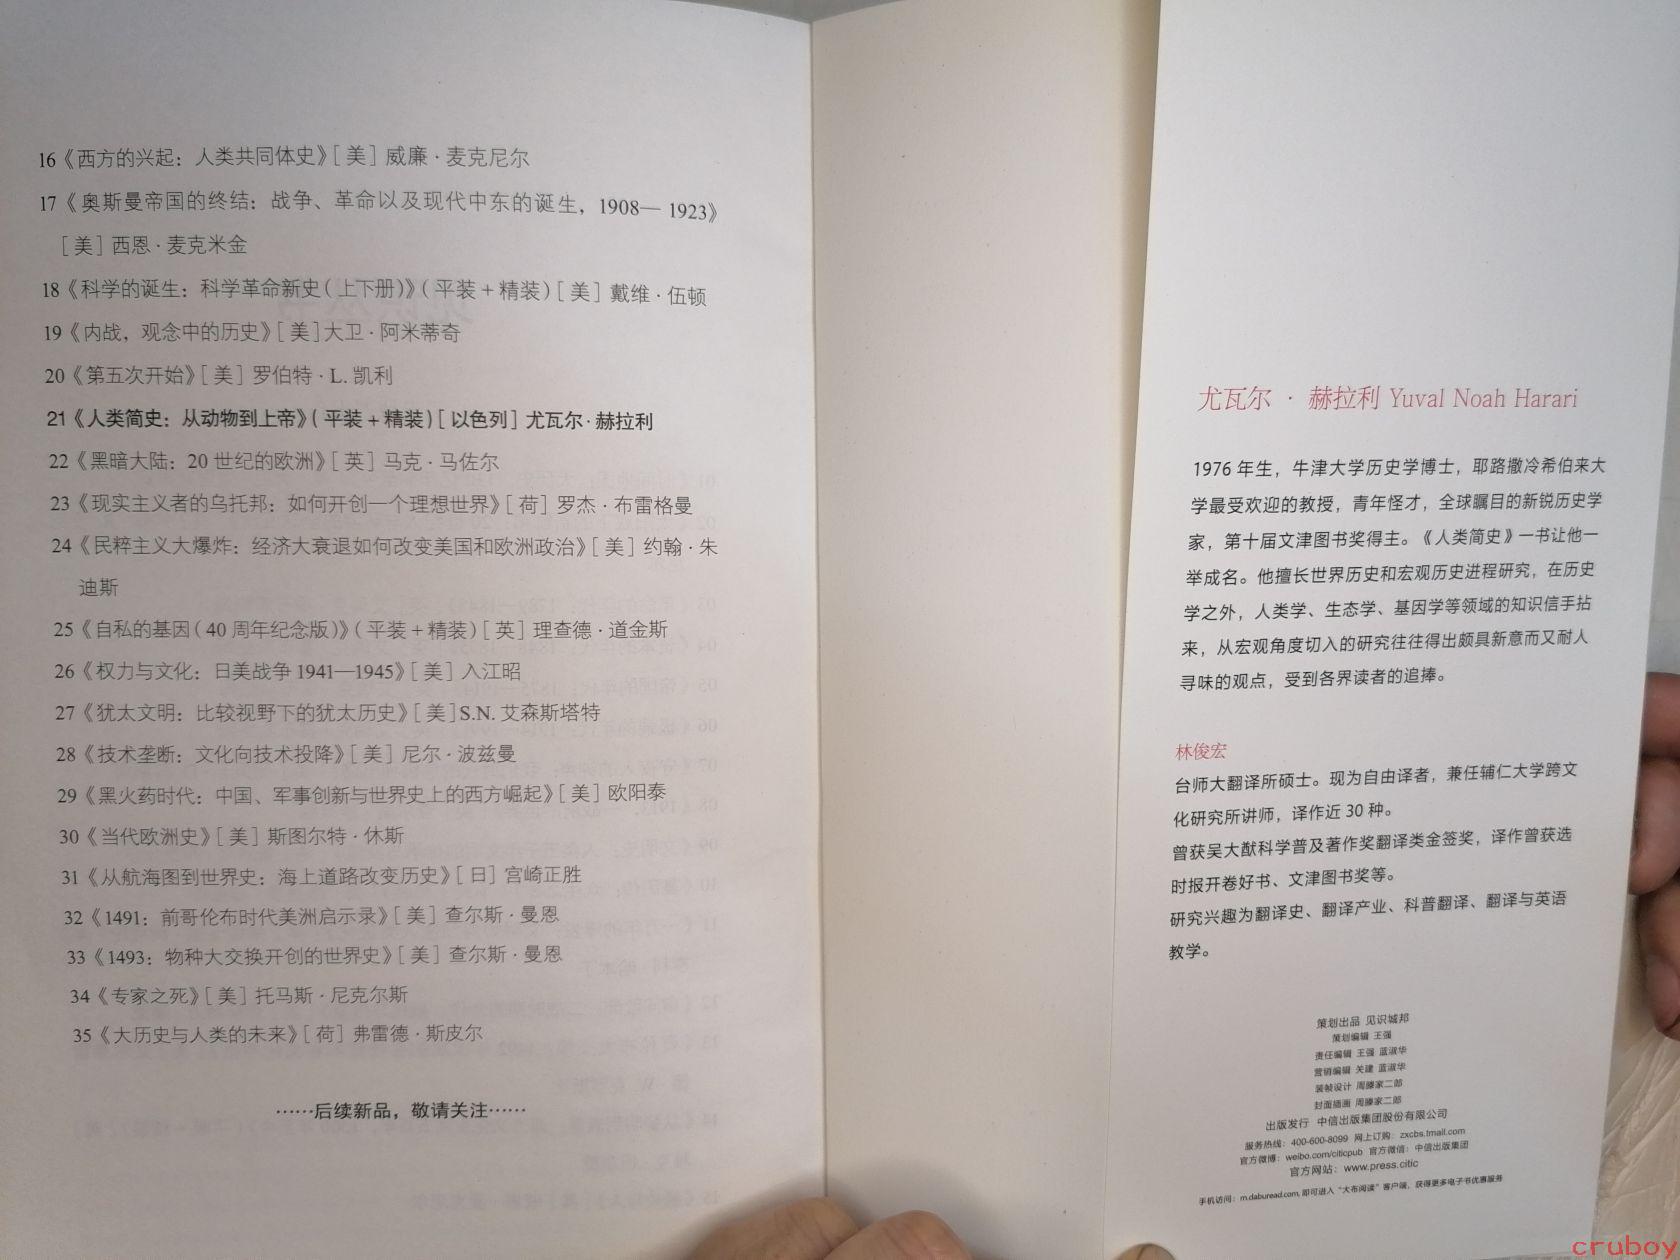 16《西方的兴起：人类共同体史》[美] 威廉·麦克尼尔
17《奥斯曼帝国的终结：战争、革命以及现代中东的诞生，1908—1923》
[美] 西恩·麦克米金
18《科学的诞生：科学革命新史（上下册）》（平装+精装）[美] 戴维·伍顿
19《内战，观念中的历史》[美]大卫·阿米蒂奇
20《第五次开始》[美] 罗伯特·L. 凯利
21《人类简史：从动物到上帝》（平装+精装）[以色列] 尤瓦尔·赫拉利
22《黑暗大陆：20世纪的欧洲》[英] 马克·马佐尔
23《现实主义者的乌托邦：如何开创一个理想世界》[荷] 罗杰·布雷格曼
24《民粹主义大爆炸：经济大衰退如何改变美国和欧洲政治》[美] 约翰·朱
迪斯
25《自私的基因（40周年纪念版）》（平装+精装）[英] 理查德·道金斯
26《权力与文化：日美战争1941—1945》[美] 入江昭
27《犹太文明：比较视野下的犹太历史》[美]S.N. 艾森斯塔特
28《技术垄断：文化向技术投降》[美] 尼尔·波兹曼
29《黑火药时代：中国、军事创新与世界史上的西方崛起》[美] 欧阳泰
30《当代欧洲史》[美] 斯图尔特·休斯
31《从航海图到世界史：海上道路改变历史》[日] 宫崎正胜
32《1491：前哥伦布时代美洲启示录》[美] 查尔斯·曼恩
33《1493：物种大交换开创的世界史》[美] 查尔斯·曼恩
34《专家之死》[美] 托马斯·尼克尔斯
35《大历史与人类的未来》[荷] 弗雷德·斯皮尔
……后续新品，敬请关注……
尤瓦尔·赫拉利 Yuval Noah Harari
1976年生，牛津大学历史学博士，耶路撒冷希伯来大
学最受欢迎的教授，青年怪才，全球瞩目的新锐历史学
家，第十届文津图书奖得主。《人类简史》一书让他一
举成名。他擅长世界历史和宏观历史进程研究，在历史
学之外，人类学、生态学、基因学等领域的知识信手拈
来，从宏观角度切入的研究往往得出颇具新意而又耐人
寻味的观点，受到各界读者的追捧。
林俊宏
台师大翻译所硕士。现为自由译者，兼任辅仁大学跨文
化研究所讲师，译作近30种。
曾获吴大猷科学普及著作奖翻译类金签奖，译作曾获选
时报开卷好书、文津图书奖等。
研究兴趣为翻译史、翻译产业、科普翻译、翻译与英语
教学。
策划出品 见识城邦
策划编辑 王强
责任编辑 王强 蓝淑华
营销编辑 关建 蓝淑华
装帧设计 周滕家二郎
封面插画 周滕家二郎
出版发行 中信出版集团股份有限公司
服务热线：400-600-8099 网上订购：zxcbs.tmall.com
官方微博：weibo.com/citicpub 官方微信：中信出版集团
官方网站：www.press.citic
手机访问：m.daburead.com, 即可进入“大布阅读”客户端，获得更多电子书优惠服务
cruboy